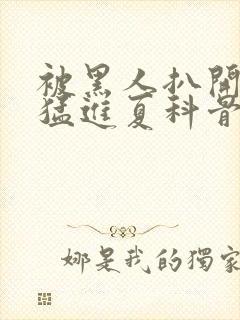 被黑人扒開
猛進夏科晋
娜是我的獨家